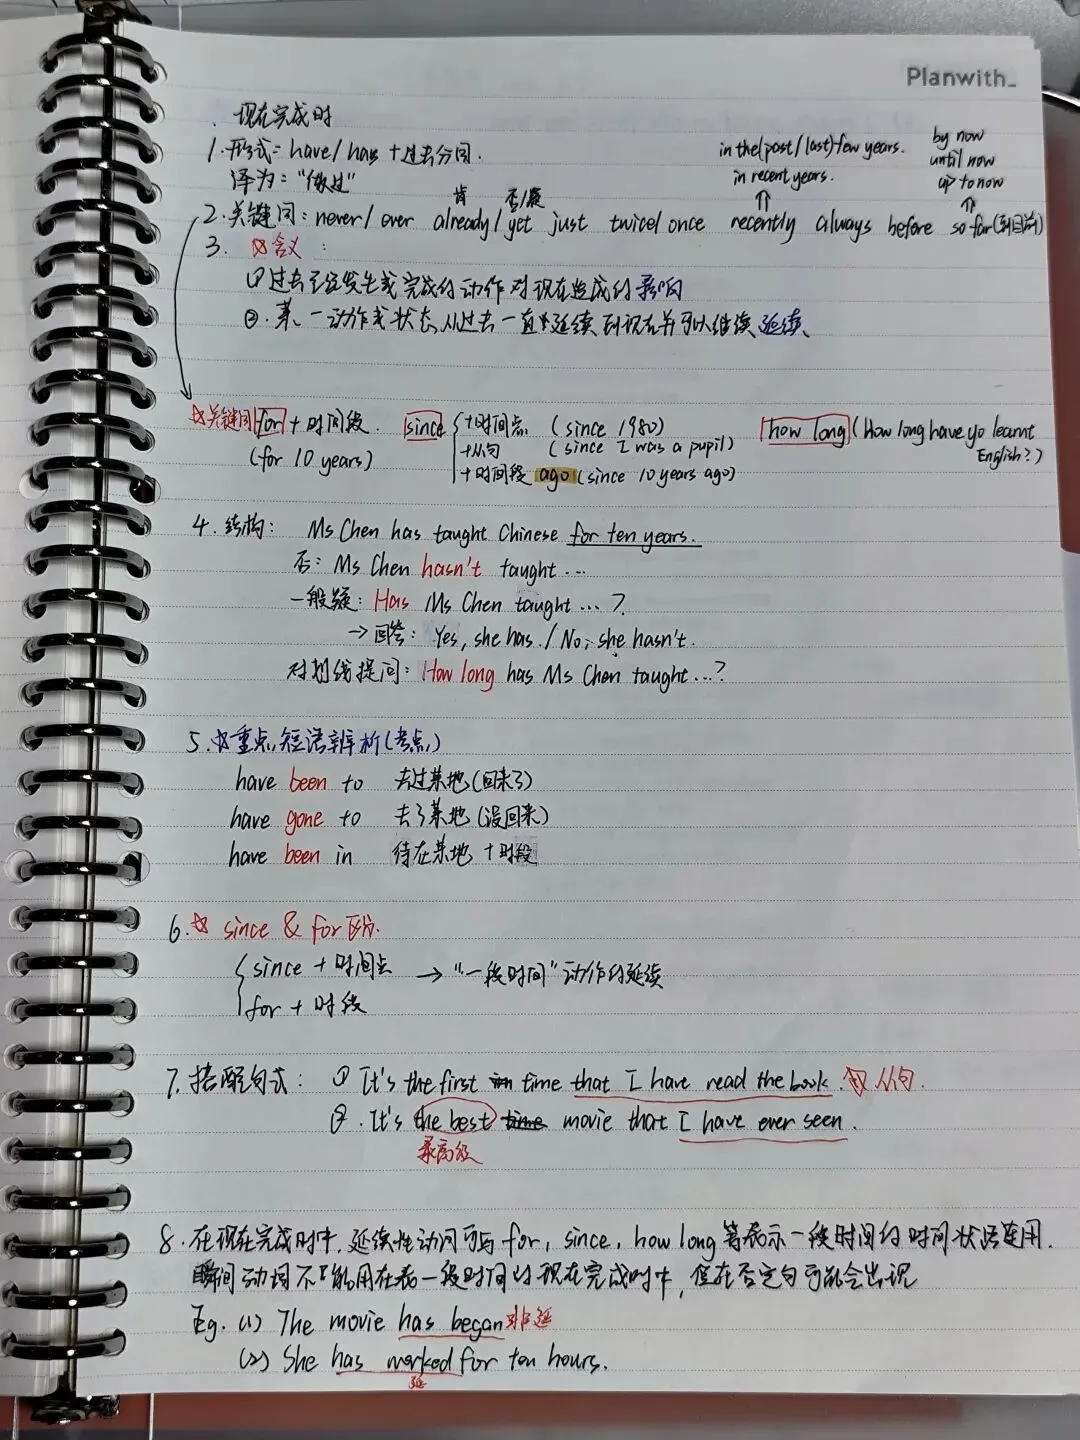 Planwith_
现在完成时
1.形式: have/has +过去分词.
译为: "做过"
in the (past/last) few years.
in recent years.
⇑
by now
until now
up to now
⇑
肯 否/疑
2.关键词: never/ever already/yet just twice/once recently always before so far(到目前)
3. ☆含义:
①过去已经发生或完成的动作对现在造成的影响
②.某一动作或状态从过去一直延续到现在并可以继续延续、
☆关键词 for + 时间段.
(for 10 years)
since
+时间点 (since 1980)
+从句 (since I was a pupil)
+时间段 ago (since 10 years ago)
how long (How long have yo learnt
English?)
4. 结构: Ms Chen has taught Chinese for ten years.
否: Ms Chen hasn't taught ...
一般疑: Has Ms Chen taught ... ?
→回答: Yes, she has. / No, she hasn't.
对划线提问: How long has Ms Chen taught...?
5.☆重点,短语辨析(考点)
have been to 去过某地(回来了)
have gone to 去了某地(没回来)
have been in 待在某地 +时段
6.☆ since & for 区分.
since +时间点 → "一段时间"动作的延续
for + 时段
7. 搭配句式: ① It's the first time that I have read the book. 从句.
②. It's the best movie that I have ever seen.
最高级
8. 在现在完成时中,延续性动词可与 for, since, how long 等表示一段时间的时间状语连用.
瞬间动词不能用在表一段时间的现在完成时中,但在否定句可能会出现
Eg. (1) The movie has began 非延
(2) She has worked for ten hours.
延